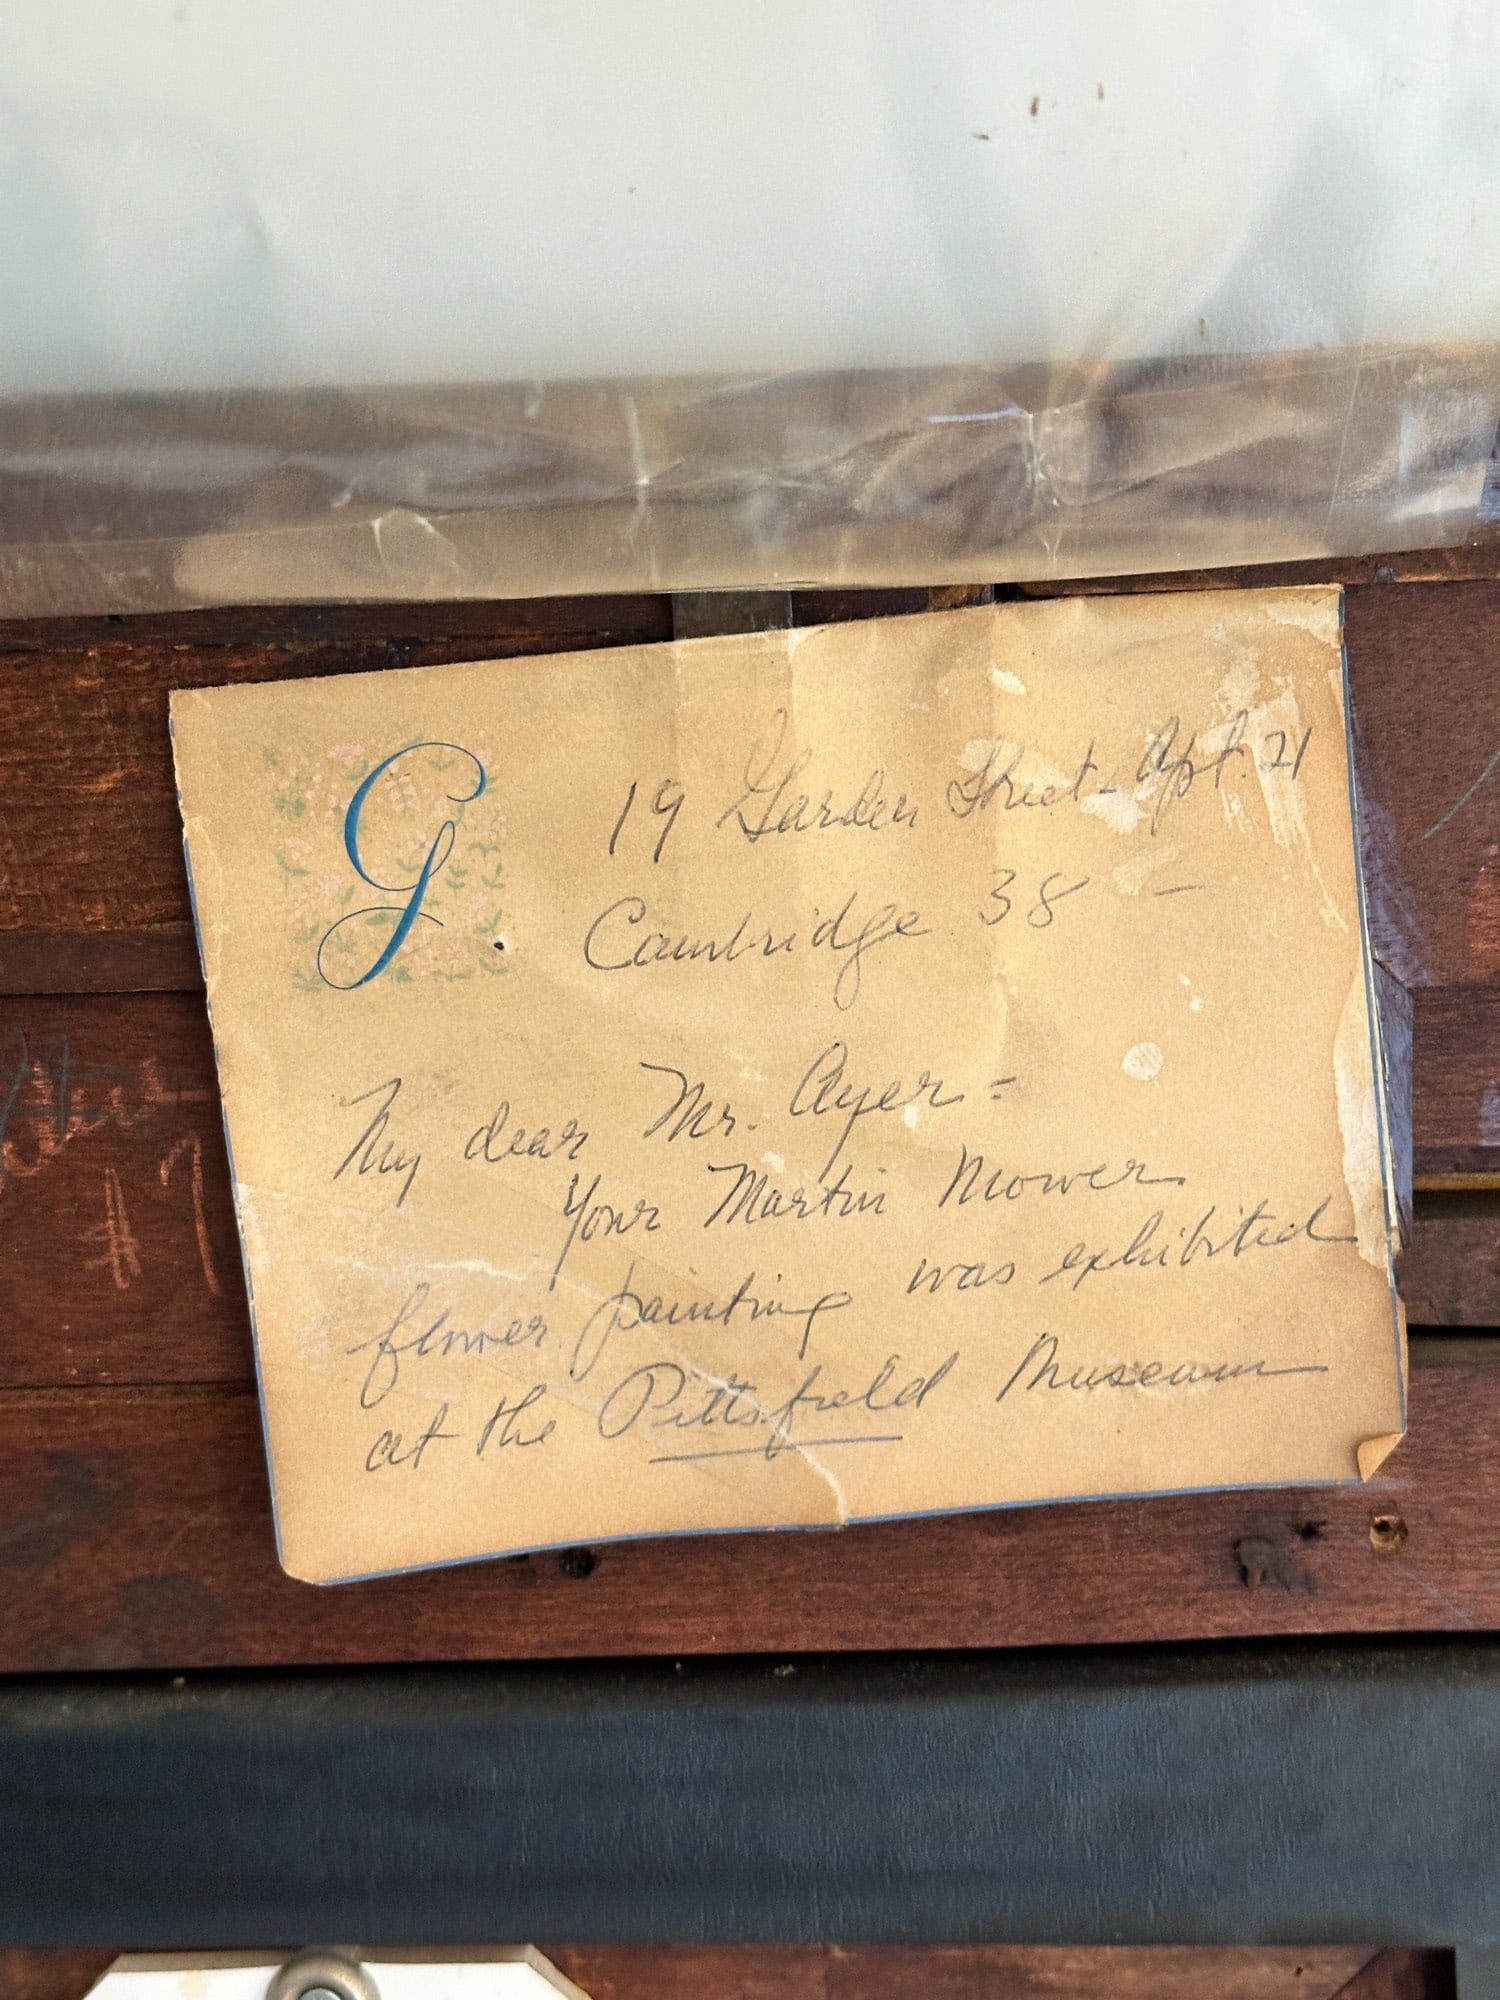 G
19 Garden Street - Apt. 21
Cambridge 38 -
My dear Mr. Ayer =
Your Martin Mower
flower painting was exhibited
at the Pittsfield Museum
#7